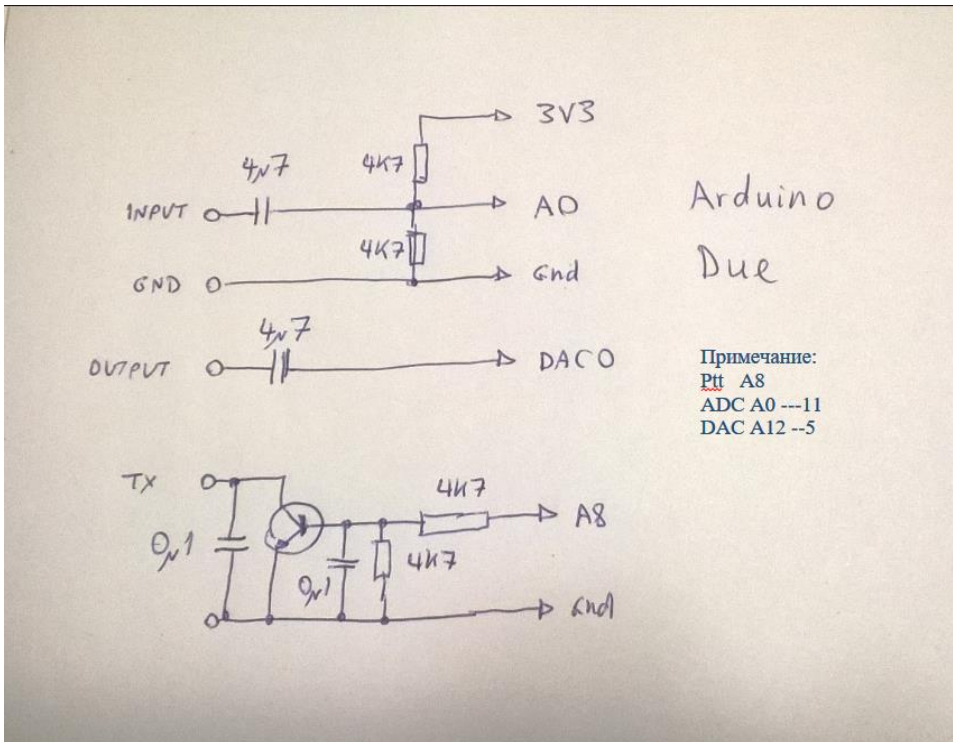 3V3
4K7
4µ7
INPUT
A0
4K7
GND
Gnd
Arduino
Due
4µ7
OUTPUT
DAC0
Примечание:
Ptt A8
ADC A0 ---11
DAC A12 --5
TX
4K7
A8
0µ1
0µ1
4K7
Gnd